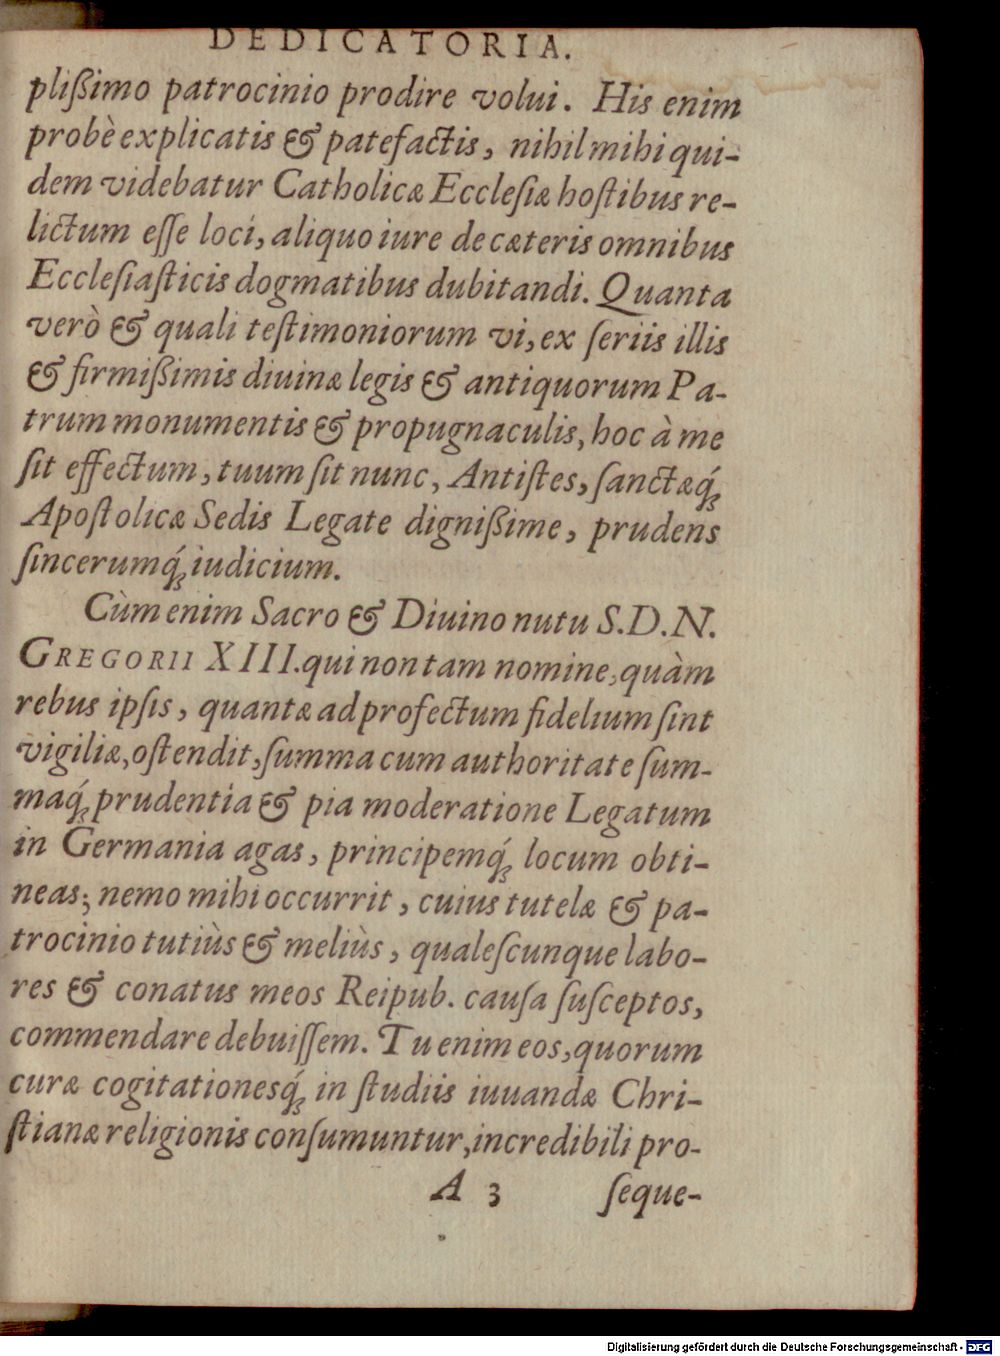 DEDICATORIA.
plißimo patrocinio prodire volui. His enim
probè explicatis & patefactis, nihil mihi qui-
dem videbatur Catholicæ Ecclesiæ hostibus re-
lictum esse loci, aliquo iure de cæteris omnibus
Ecclesiasticis dogmatibus dubitandi. Quanta
verò & quali testimoniorum vi, ex seriis illis
& firmißimis diuinæ legis & antiquorum Pa-
trum monumentis & propugnaculis, hoc à me
sit effectum, tuum sit nunc, Antistes, sanctæq́;
Apostolicæ Sedis Legate dignißime, prudens
sincerumq́; iudicium.
Cùm enim Sacro & Diuino nutu S.D.N.
GREGORII XIII. qui non tam nomine, quàm
rebus ipsis, quantæ ad profectum fidelium sint
vigiliæ, ostendit, summa cum authoritate sum-
maq́; prudentia & pia moderatione Legatum
in Germania agas, principemq́; locum obti-
neas; nemo mihi occurrit, cuius tutelæ & pa-
trocinio tutiùs & meliùs, qualescunque labo-
res & conatus meos Reipub. causa susceptos,
commendare debuissem. Tu enim eos, quorum
curæ cogitationesq́; in studiis iuuandæ Chri-
stianæ religionis consumuntur, incredibili pro-
A 3 seque-
Digitalisierung gefördert durch die Deutsche Forschungsgemeinschaft - DFG